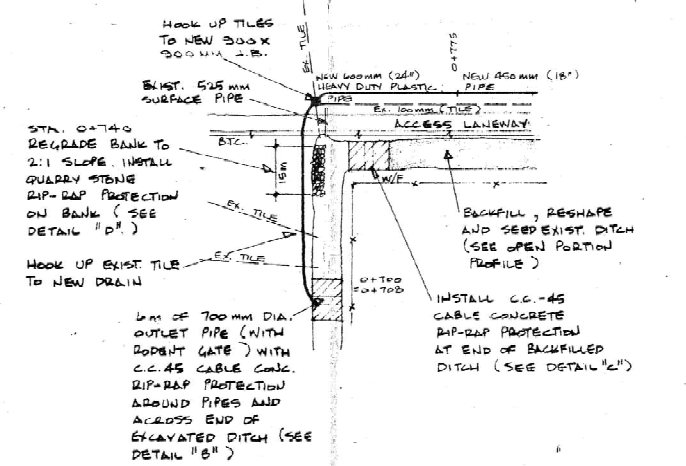 HOOK UP TILES
TO NEW 900 X
900 MM J.B.
EX. TILE
0+775
EXIST. 525 mm
SURFACE PIPE
NEW 600MM (24")
HEAVY DUTY PLASTIC
PIPE
NEW 450MM (18")
PIPE
EX. 100MM (TILE)
ACCESS LANEWAY
B.T.C.
STA. 0+740
REGRADE BANK TO
2:1 SLOPE. INSTALL
QUARRY STONE
RIP-RAP PROTECTION
ON BANK (SEE
DETAIL "D".)
15m
W/F
EX. TILE
BACKFILL, RESHAPE
AND SEED EXIST. DITCH
(SEE OPEN PORTION
PROFILE)
HOOK UP EXIST. TILE
TO NEW DRAIN
EX. TILE
0+700
=0+708
6m OF 700mm DIA.
OUTLET PIPE (WITH
RODENT GATE) WITH
C.C.45 CABLE CONC.
RIP-RAP PROTECTION
AROUND PIPES AND
ACROSS END OF
EXCAVATED DITCH (SEE
DETAIL "B")
INSTALL C.C.-45
CABLE CONCRETE
RIP-RAP PROTECTION
AT END OF BACKFILLED
DITCH (SEE DETAIL "C")